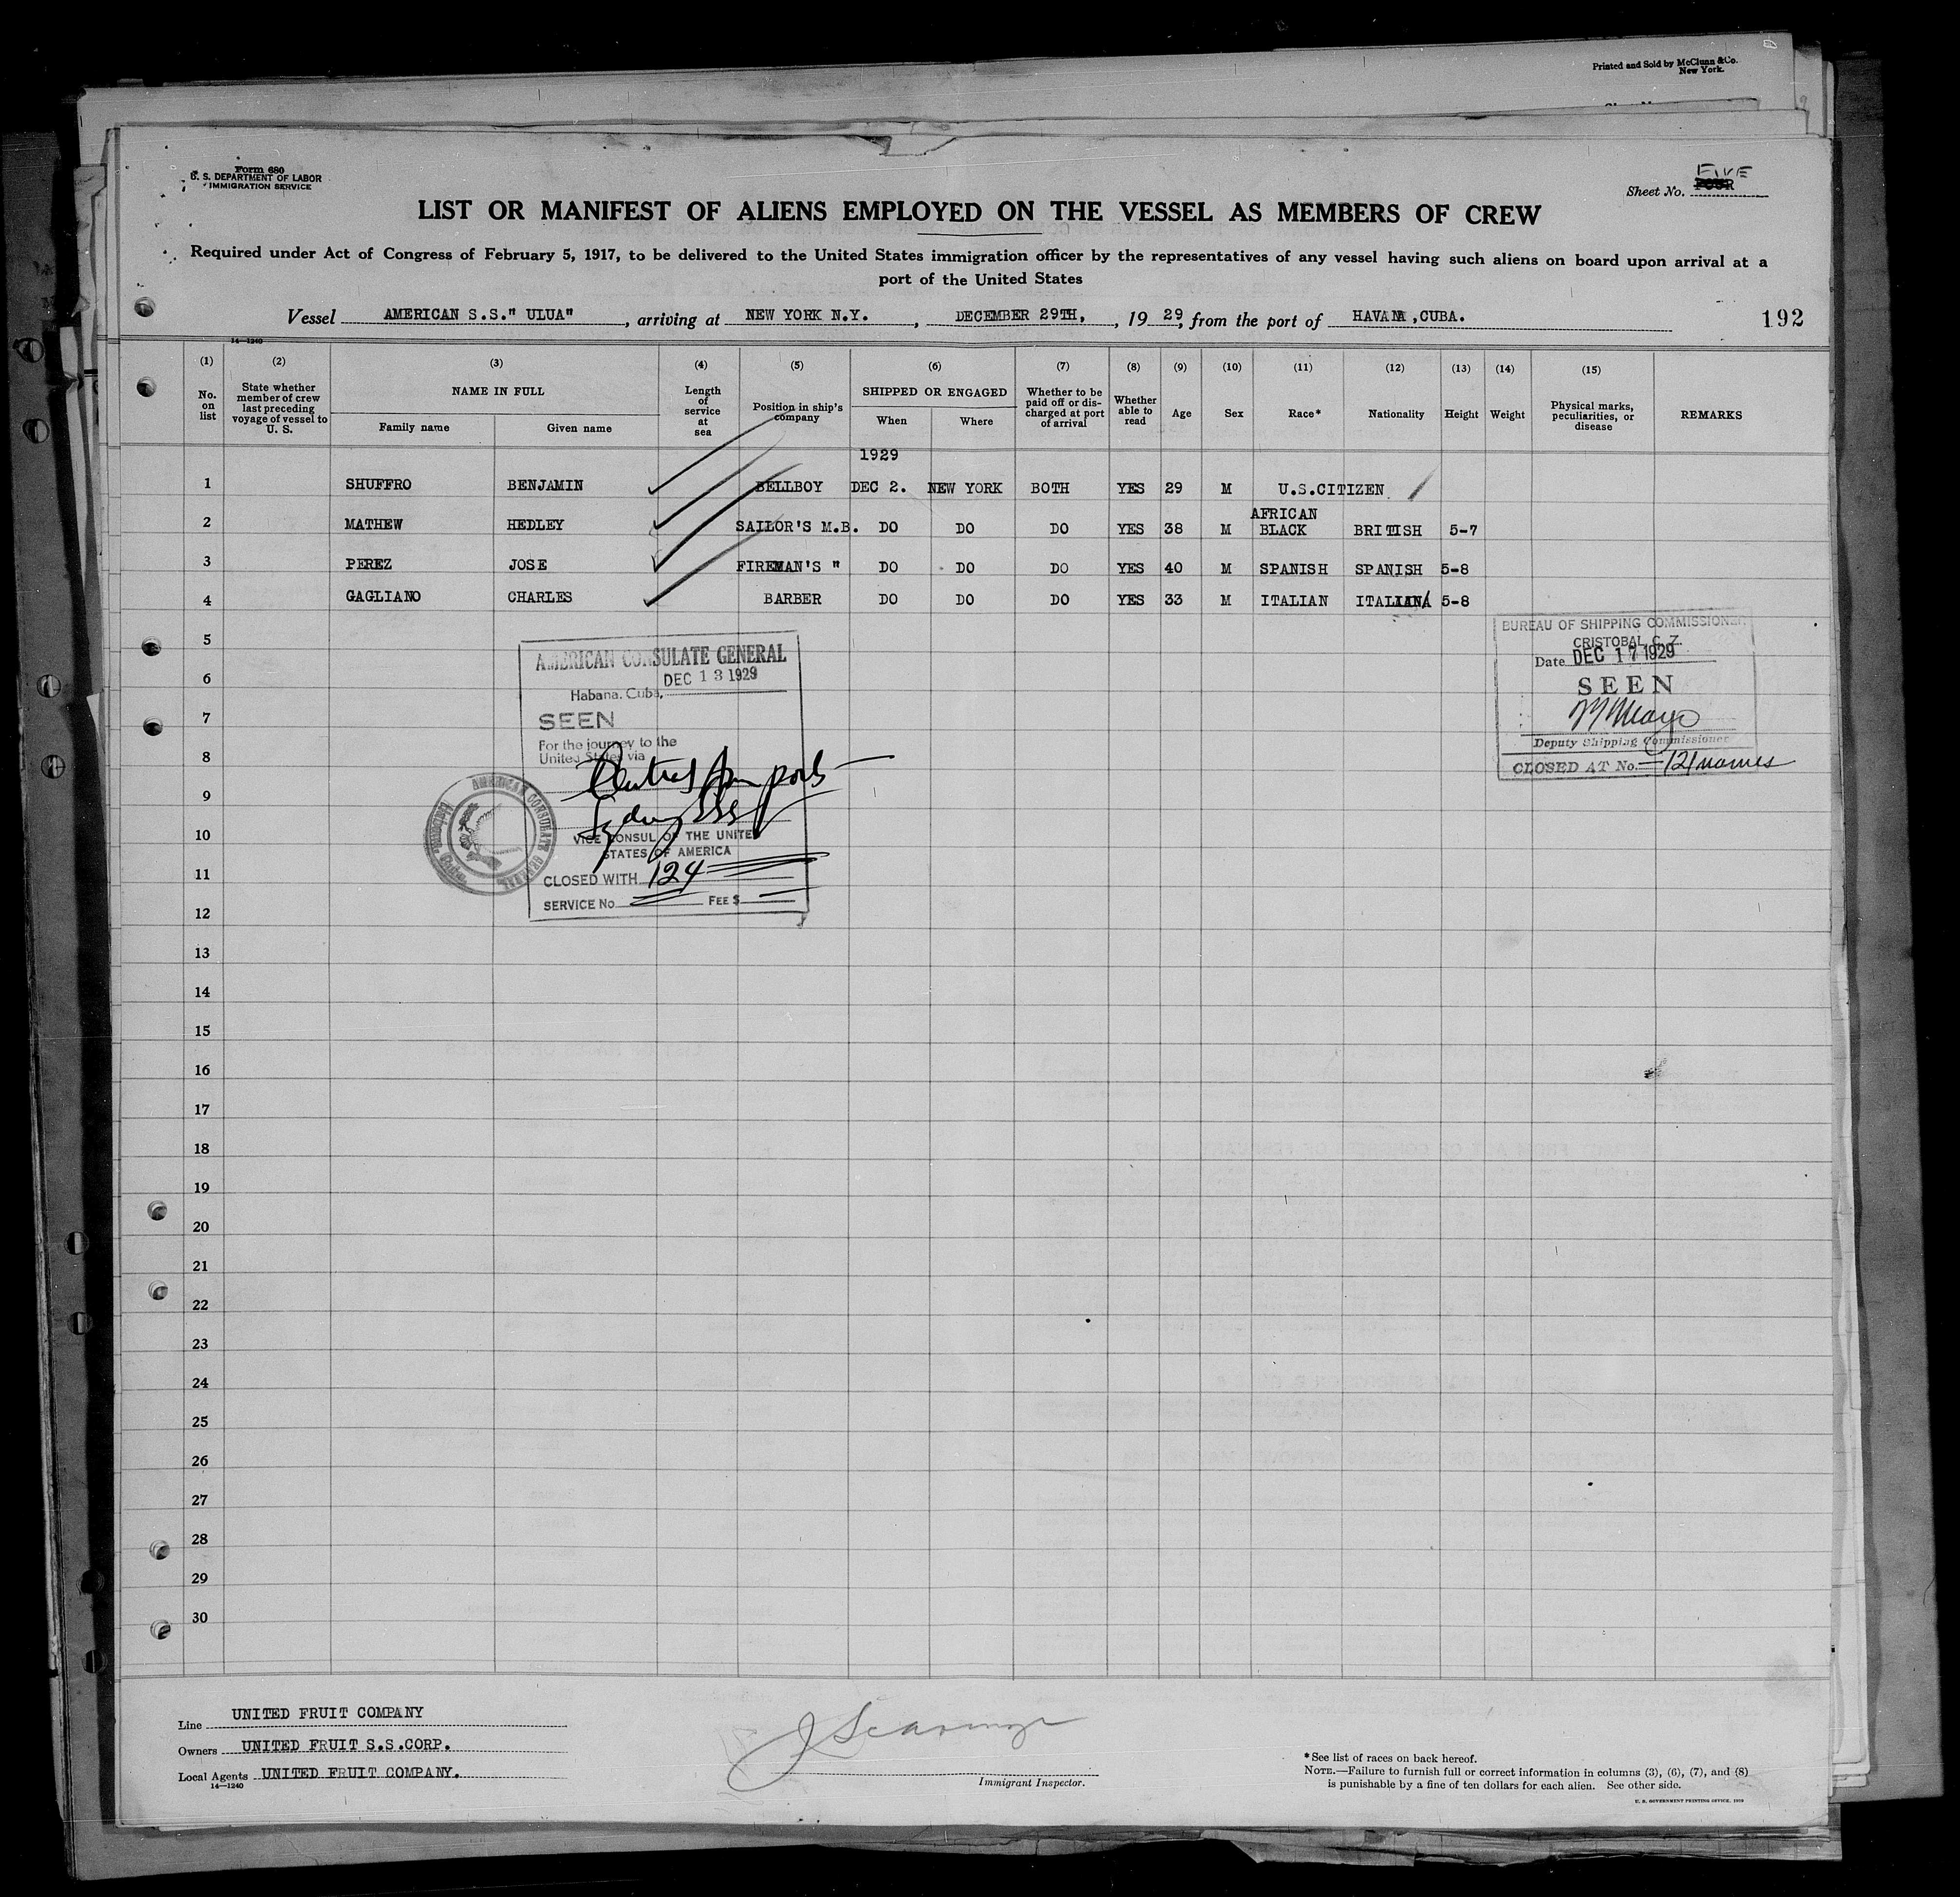 Printed and Sold by McClunn & Co.
New York.
Form 680
U. S. DEPARTMENT OF LABOR
IMMIGRATION SERVICE
FIVE
Sheet No. FOUR
LIST OR MANIFEST OF ALIENS EMPLOYED ON THE VESSEL AS MEMBERS OF CREW
Required under Act of Congress of February 5, 1917, to be delivered to the United States immigration officer by the representatives of any vessel having such aliens on board upon arrival at a
port of the United States
Vessel AMERICAN S.S." ULUA" , arriving at NEW YORK N.Y. , DECEMBER 29TH, , 19 29, from the port of HAVANA ,CUBA. 192
14—1240
(1) (2) (3) (4) (5) (6) (7) (8) (9) (10) (11) (12) (13) (14) (15)
No. on list State whether member of crew last preceding voyage of vessel to U. S. NAME IN FULL Length of service at sea Position in ship's company SHIPPED OR ENGAGED Whether to be paid off or discharged at port of arrival Whether able to read Age Sex Race* Nationality Height Weight Physical marks, peculiarities, or disease REMARKS
Family name Given name When Where
1929
1 SHUFFRO BENJAMIN BELLBOY DEC 2. NEW YORK BOTH YES 29 M U.S.CITIZEN
AFRICAN
2 MATHEW HEDLEY SAILOR'S M.B. DO DO DO YES 38 M BLACK BRITISH 5-7
3 PEREZ JOSE FIREMAN'S " DO DO DO YES 40 M SPANISH SPANISH 5-8
4 GAGLIANO CHARLES BARBER DO DO DO YES 33 M ITALIAN ITALIAN 5-8
5
6
7
8
9
10
11
12
13
14
15
16
17
18
19
20
21
22
23
24
25
26
27
28
29
30
AMERICAN CONSULATE GENERAL
DEC 13 1929
Habana. Cuba,
SEEN
For the journey to the
United States via
ports
VICE CONSUL OF THE UNITED
STATES OF AMERICA
CLOSED WITH 124
SERVICE No FEE $
AMERICAN CONSULATE GENERAL
Cuba
BUREAU OF SHIPPING COMMISSIONER
CRISTOBAL C. Z.
Date DEC 17 1929
SEEN
Deputy Shipping Commissioner
CLOSED AT No. 121 names
Line UNITED FRUIT COMPANY
Owners UNITED FRUIT S.S.CORP.
Local Agents UNITED FRUIT COMPANY.
14—1240
Immigrant Inspector.
*See list of races on back hereof.
NOTE.—Failure to furnish full or correct information in columns (3), (6), (7), and (8)
is punishable by a fine of ten dollars for each alien. See other side.
U. S. GOVERNMENT PRINTING OFFICE,